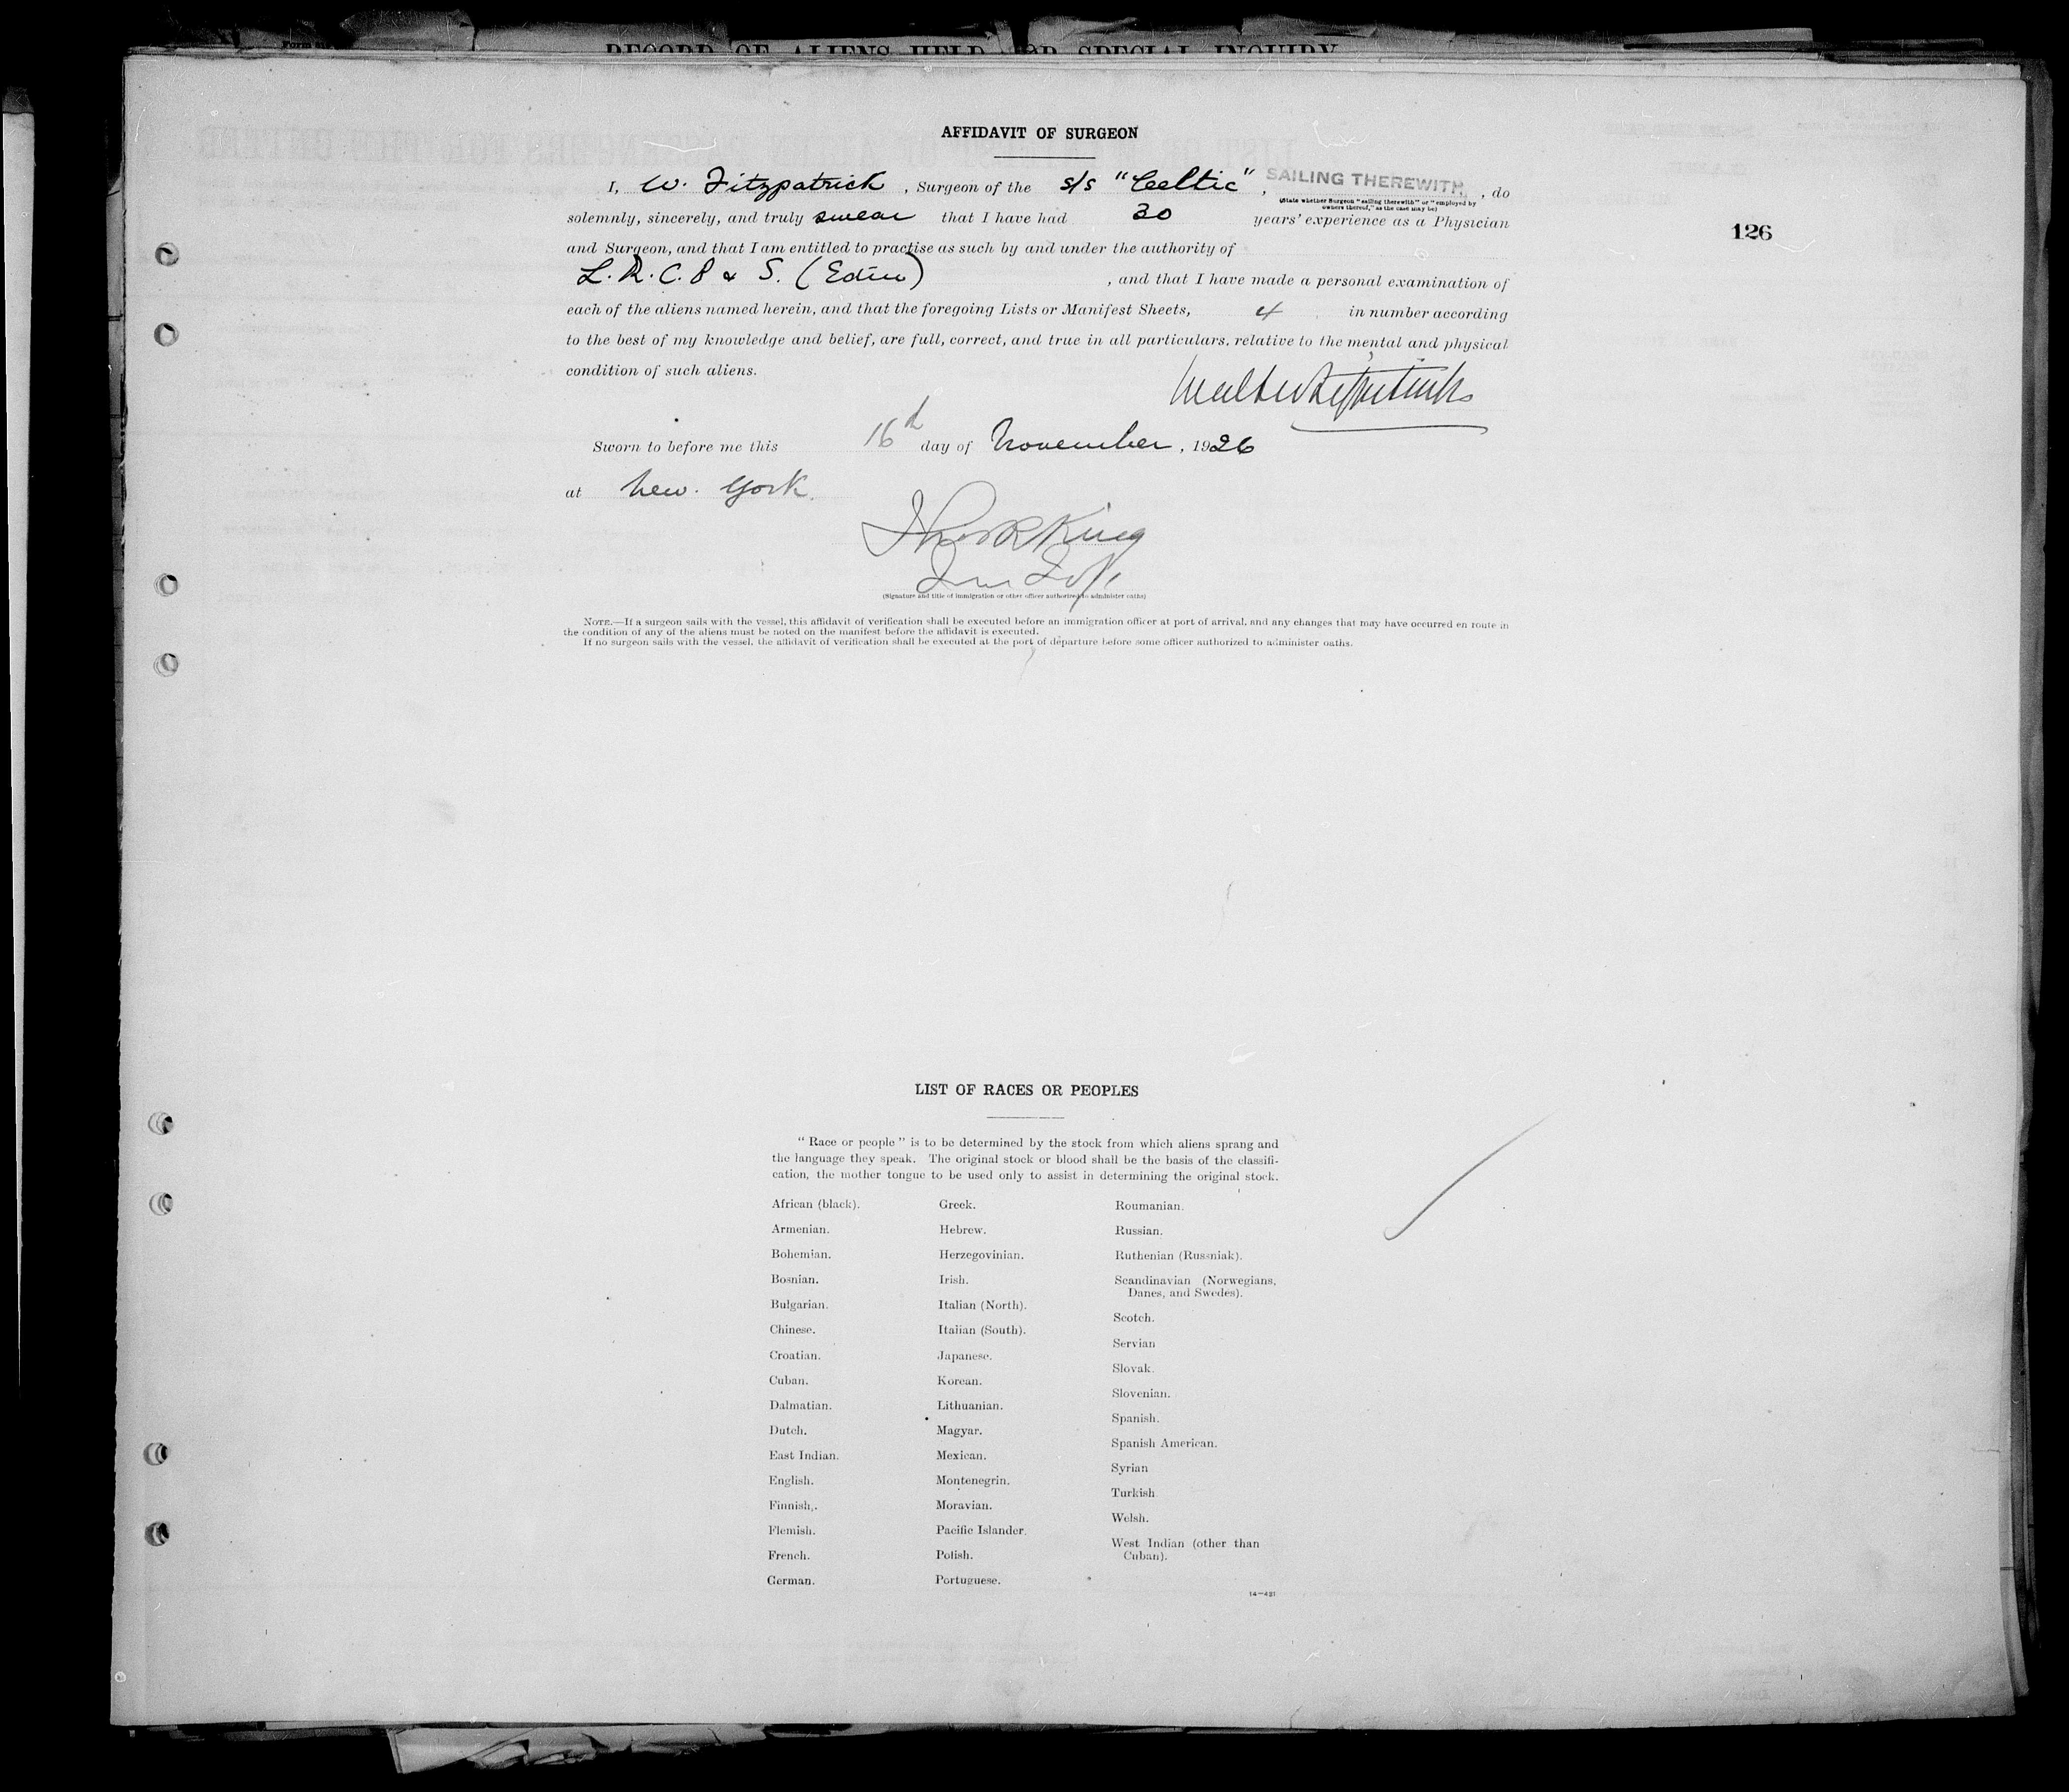 RECORD OF ALIENS HELD FOR SPECIAL INQUIRY
AFFIDAVIT OF SURGEON
I, W. Fitzpatrick, Surgeon of the s/s "Celtic", SAILING THEREWITH, do
(State whether Surgeon "sailing therewith" or "employed by
owners thereof," as the case may be)
solemnly, sincerely, and truly swear that I have had 30 years' experience as a Physician
126
and Surgeon, and that I am entitled to practise as such by and under the authority of
L.R.C.P & S. (Edin), and that I have made a personal examination of
each of the aliens named herein, and that the foregoing Lists or Manifest Sheets, 4 in number according
to the best of my knowledge and belief, are full, correct, and true in all particulars, relative to the mental and physical
condition of such aliens.
Walter Fitzpatrick
Sworn to before me this 16th day of November, 1926
at New York.
King
(Signature and title of immigration or other officer authorized to administer oaths)
NOTE.—If a surgeon sails with the vessel, this affidavit of verification shall be executed before an immigration officer at port of arrival, and any changes that may have occurred en route in
the condition of any of the aliens must be noted on the manifest before the affidavit is executed.
If no surgeon sails with the vessel, the affidavit of verification shall be executed at the port of departure before some officer authorized to administer oaths.
LIST OF RACES OR PEOPLES
"Race or people" is to be determined by the stock from which aliens sprang and
the language they speak. The original stock or blood shall be the basis of the classifi-
cation, the mother tongue to be used only to assist in determining the original stock.
African (black).
Armenian.
Bohemian.
Bosnian.
Bulgarian.
Chinese.
Croatian.
Cuban.
Dalmatian.
Dutch.
East Indian.
English.
Finnish.
Flemish.
French.
German.
Greek.
Hebrew.
Herzegovinian.
Irish.
Italian (North).
Italian (South).
Japanese.
Korean.
Lithuanian.
Magyar.
Mexican.
Montenegrin.
Moravian.
Pacific Islander.
Polish.
Portuguese.
Roumanian.
Russian.
Ruthenian (Russniak).
Scandinavian (Norwegians,
Danes, and Swedes).
Scotch.
Servian
Slovak.
Slovenian.
Spanish.
Spanish American.
Syrian
Turkish
Welsh.
West Indian (other than
Cuban).
14—421